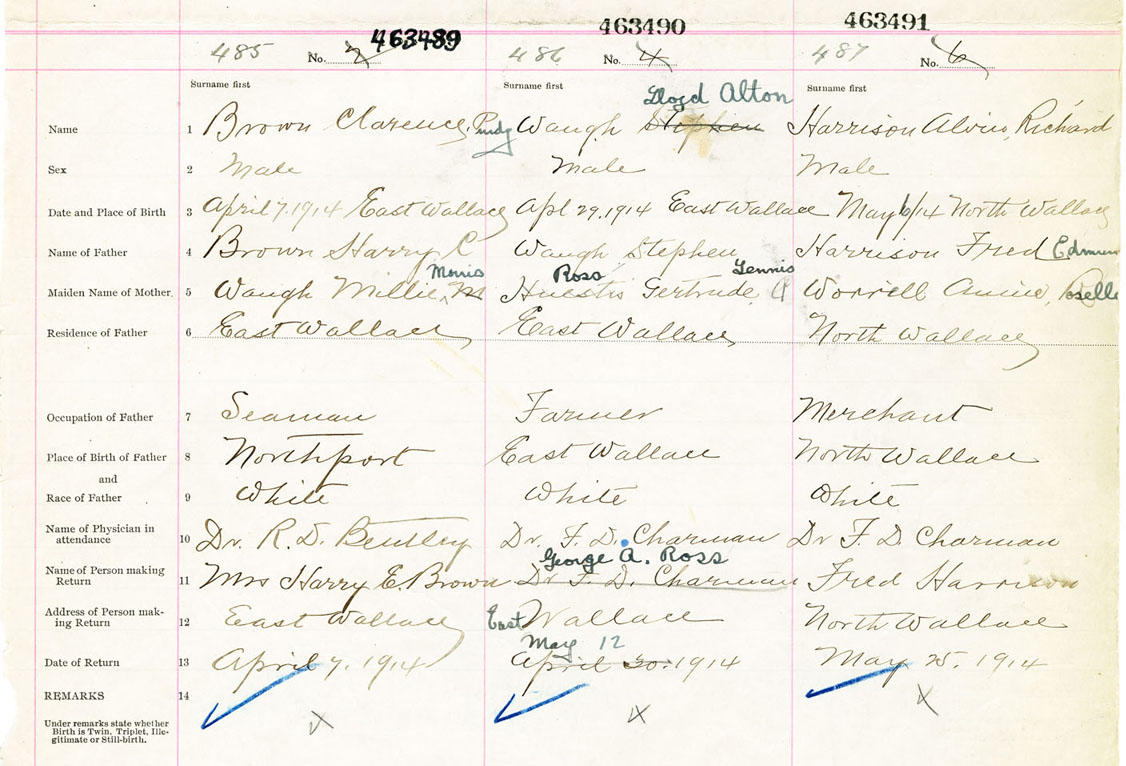 463489 463490 463491
485 No. 2 486 No. 4 487 No. 6
Surname first Surname first Surname first
Lloyd Alton
Name 1 Brown Clarence, Waugh Stephen Harrison Alvin, Richard
Sex 2 Male Male Male
Date and Place of Birth 3 April 7. 1914 East Wallace Apl 29, 1914 East Wallace May 6/14 North Wallace
Name of Father 4 Brown Harry C Waugh Stephen Harrison Fred Edmun
Morris Ross Tennis
Maiden Name of Mother 5 Waugh Millie, M Huestis Gertrude, A Worrell Roselle
Residence of Father 6 East Wallace East Wallace North Wallace
Occupation of Father 7 Seaman Farmer Merchant
Place of Birth of Father 8 Northport East Wallace North Wallace
and
Race of Father 9 White White White
Name of Physician in
attendance 10 Dr. R. D. Bentley Dr. F. D. Charman Dr F. D Charman
George A. Ross
Name of Person making
Return 11 Mrs Harry E. Brown Dr F. D. Charman Fred Harrison
Address of Person mak-
ing Return 12 East Wallace East Wallace North Wallace
May 12
Date of Return 13 April 7, 1914 April 30. 1914 May 25. 1914
REMARKS 14
Under remarks state whether
Birth is Twin, Triplet, Ille-
gitimate or Still-birth.